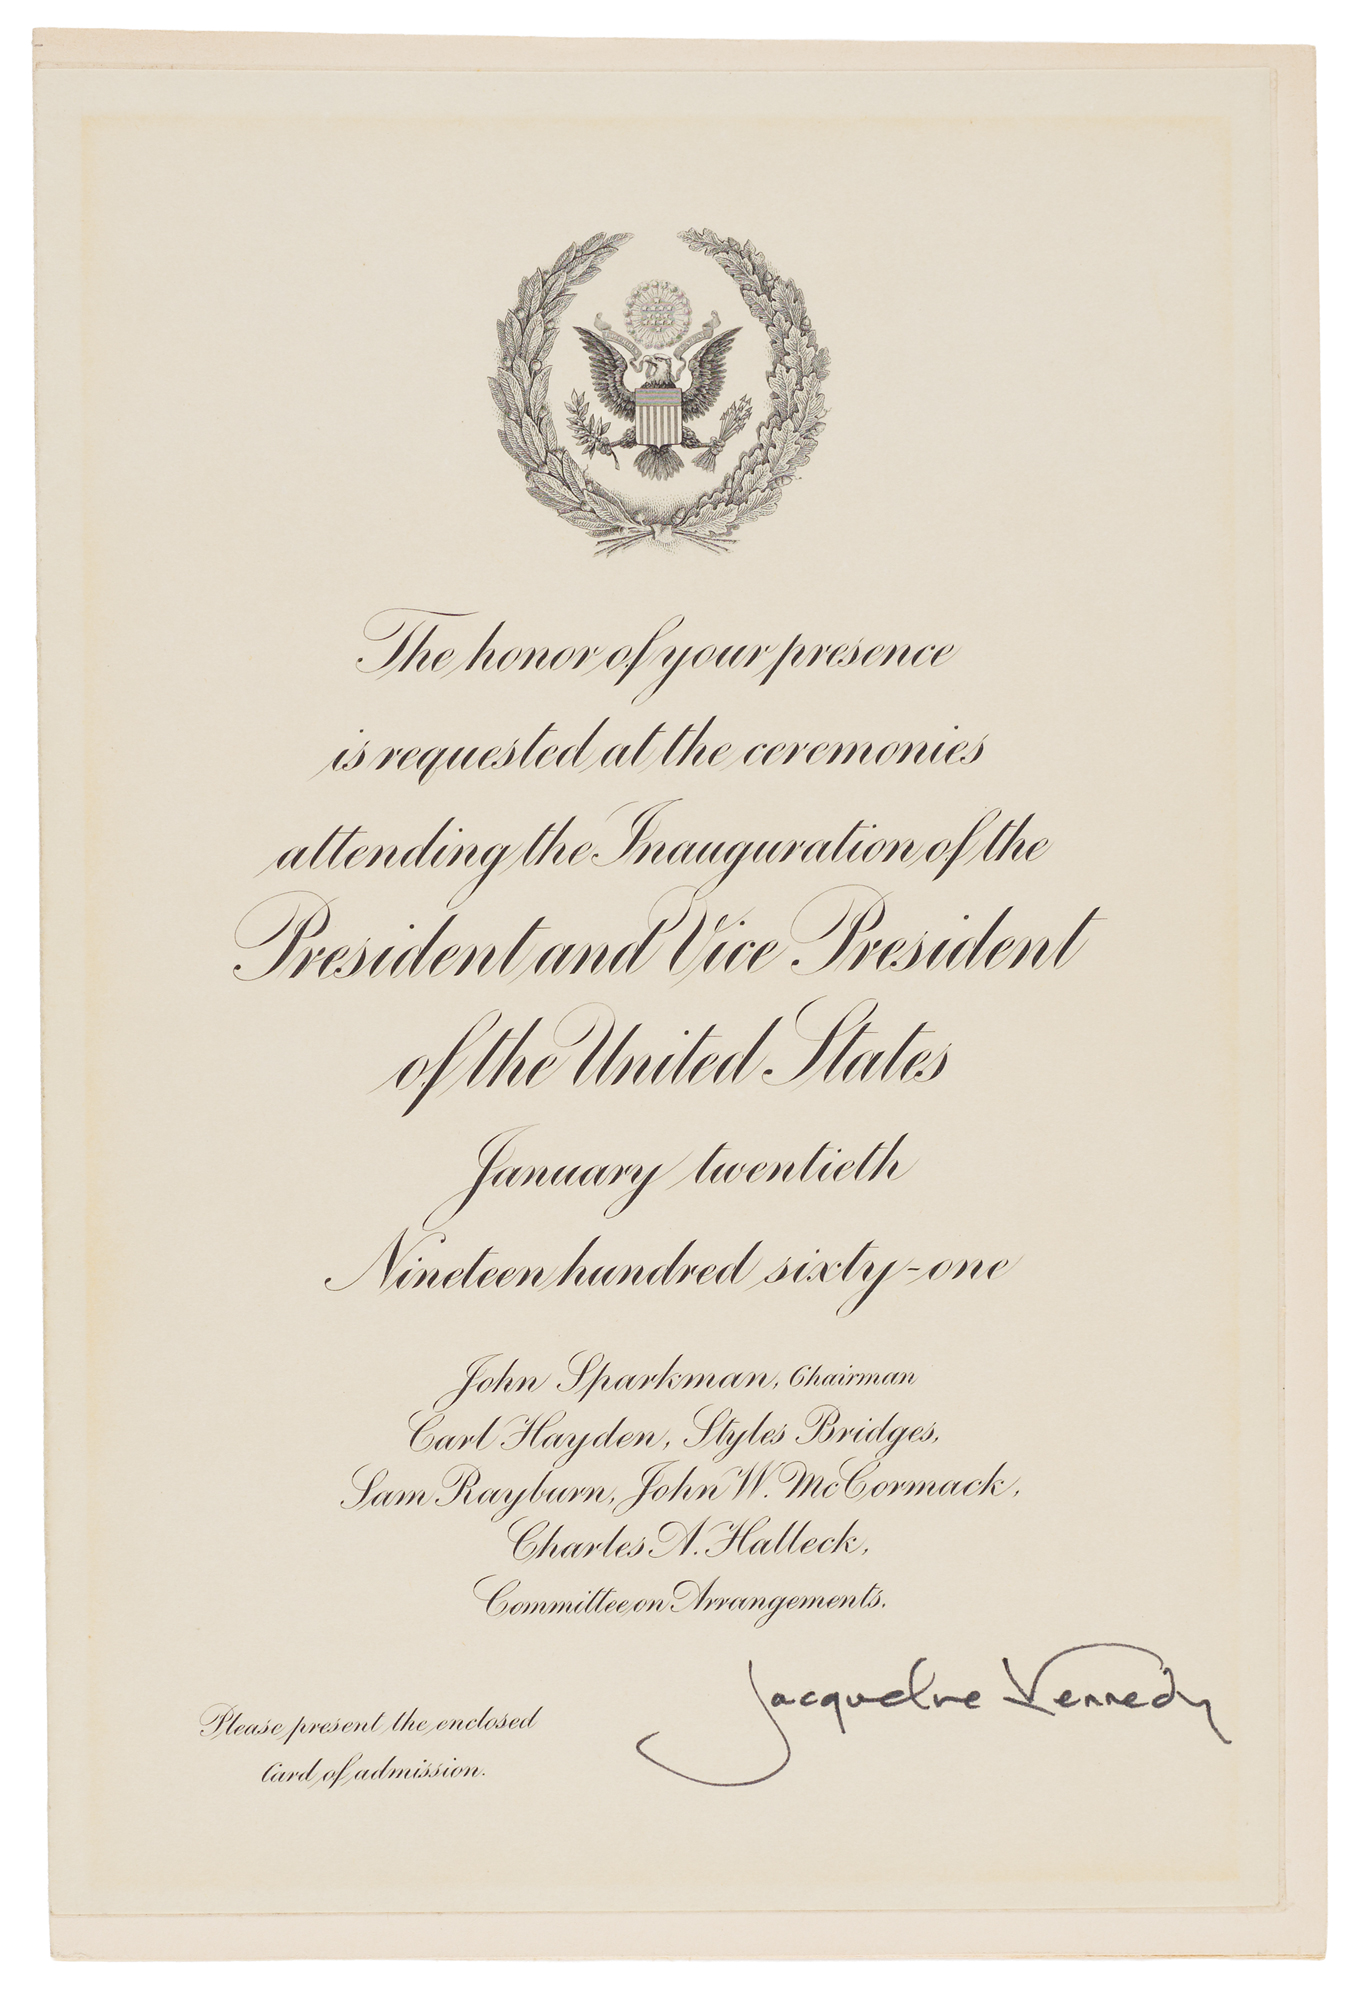 The honor of your presence
is requested at the ceremonies
attending the Inauguration of the
President and Vice President
of the United States
January twentieth
Nineteen hundred sixty-one
John Sparkman, Chairman
Carl Hayden, Styles Bridges,
Sam Rayburn, John W. McCormack,
Charles A. Halleck,
Committee on Arrangements.
Jacqueline Kennedy
Please present the enclosed
Card of admission.